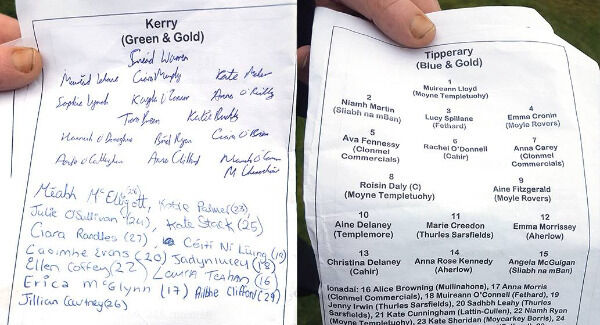 Kerry
(Green & Gold)
Sinéad Warren
Ciara Murphy Kate
Sophie Lynch Kayla O'Connor Anna O'Reilly
Tara Breen Katie
Hannah O'Donoghue Bríd Ryan Ciara O'Brien
Aoife O'Callaghan Anna Clifford
Méabh McElligott, Katie Palmer (23),
Julie O'Sullivan (24), Kate Stack (25)
Ciara Randles (27), Cáití Ní Liúing
Caoimhe Evans (20) Jady
Ellen Coffey (22) Laura (16)
Erica McGlynn (17) Ailbhe Clifford (29)
Jillian Courtney (26)
Tipperary
(Blue & Gold)
1
Muireann Lloyd
(Moyne Templetuohy)
2 3 4
Niamh Martin Lucy Spillane Emma Cronin
(Sliabh na mBan) (Fethard) (Moyle Rovers)
5 6 7
Ava Fennessy Rachel O'Donnell Anna Carey
(Clonmel (Cahir) (Clonmel
Commercials) Commercials)
8 9
Roisin Daly (C) Aine Fitzgerald
(Moyne Templetuohy) (Moyle Rovers)
10 11 12
Aine Delaney Marie Creedon Emma Morrissey
(Templemore) (Thurles Sarsfields) (Aherlow)
13 14 15
Christina Delaney Anna Rose Kennedy Angela McGuigan
(Cahir) (Aherlow) (Sliabh na mBan)
Ionadaí: 16 Alice Browning (Mullinahone), 17 Anna Morris
(Clonmel Commercials), 18 Muireann O'Connell (Fethard), 19
Jenny Irwin (Thurles Sarsfields), 20 Sadhbh Leahy (Thurles
Sarsfields), 21 Kate Cunningham (Lattin-Cullen), 22 Niamh Ryan
(Moyne Templetuohy), 23 Kate Sheridan (Moycarkey Borris), 24